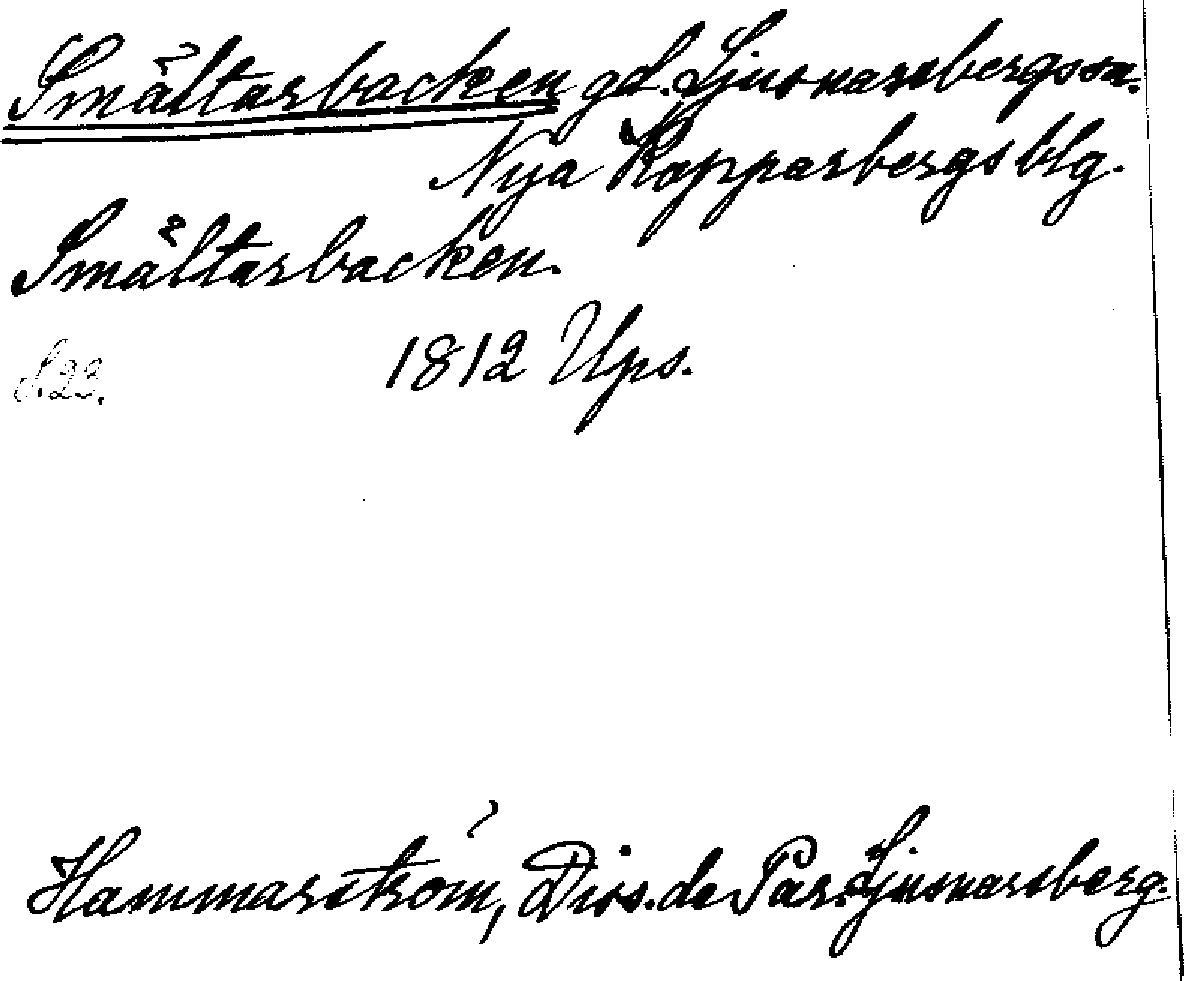 Smältarbacken gd. Ljusnarsbergs sn.
Nya Kopparbergs blg.
Smältarbacken.
1812 Ups.
S. 22.
Hammarström, Diss. de Par. Ljusnarsberg.